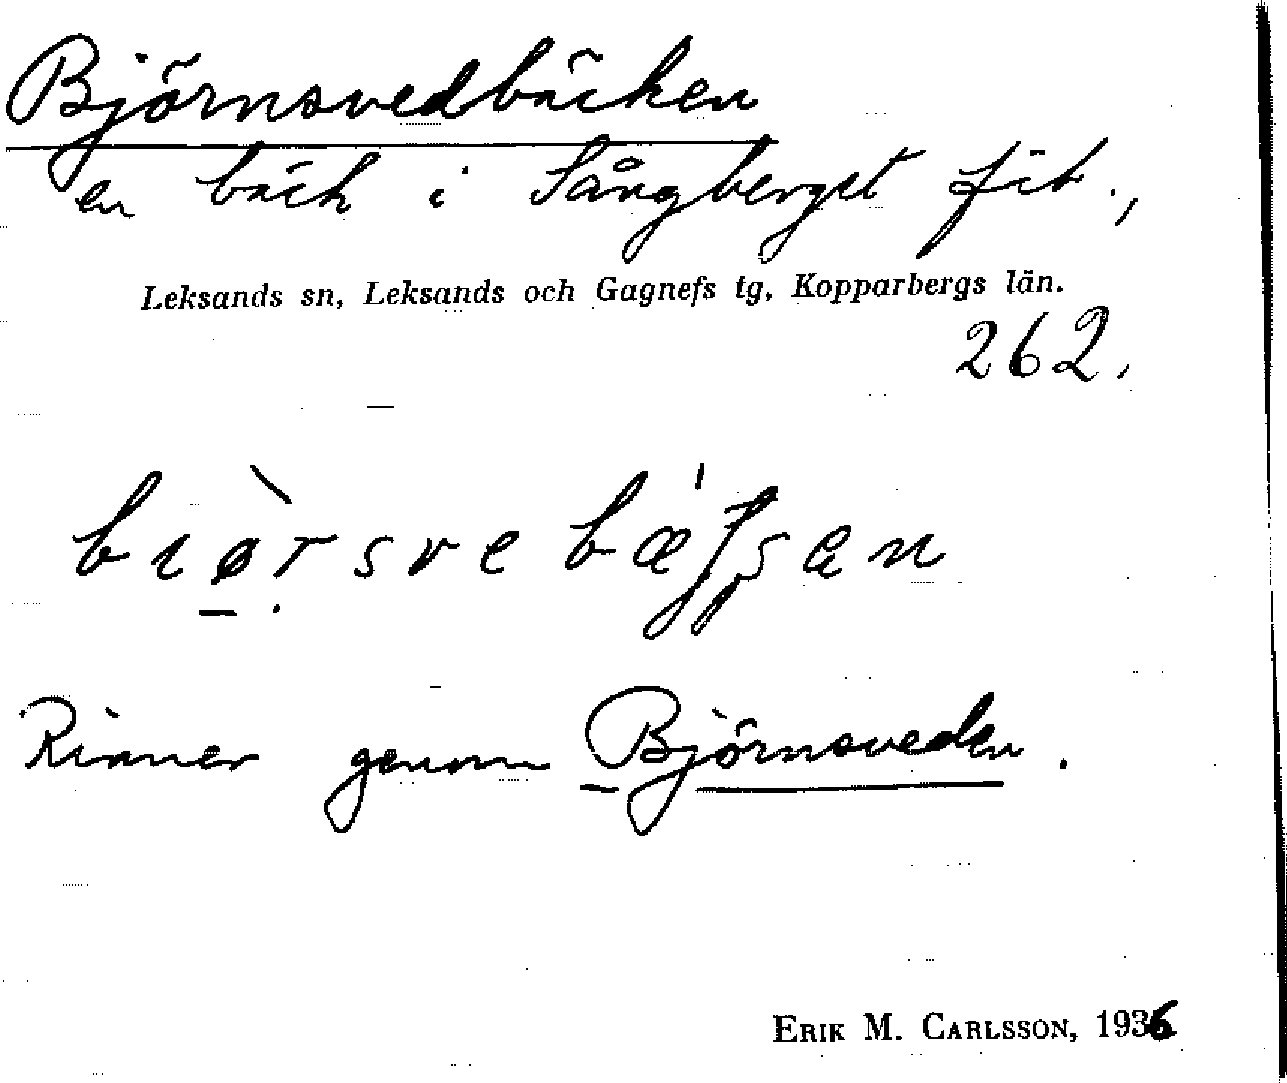 Björnsvedbäcken
en bäck i Sångbergst fäb.,
Leksands sn, Leksands och Gagnefs tg, Kopparbergs län.
262.
Rinner genom Björnsveden.
ERIK M. CARLSSON, 1936